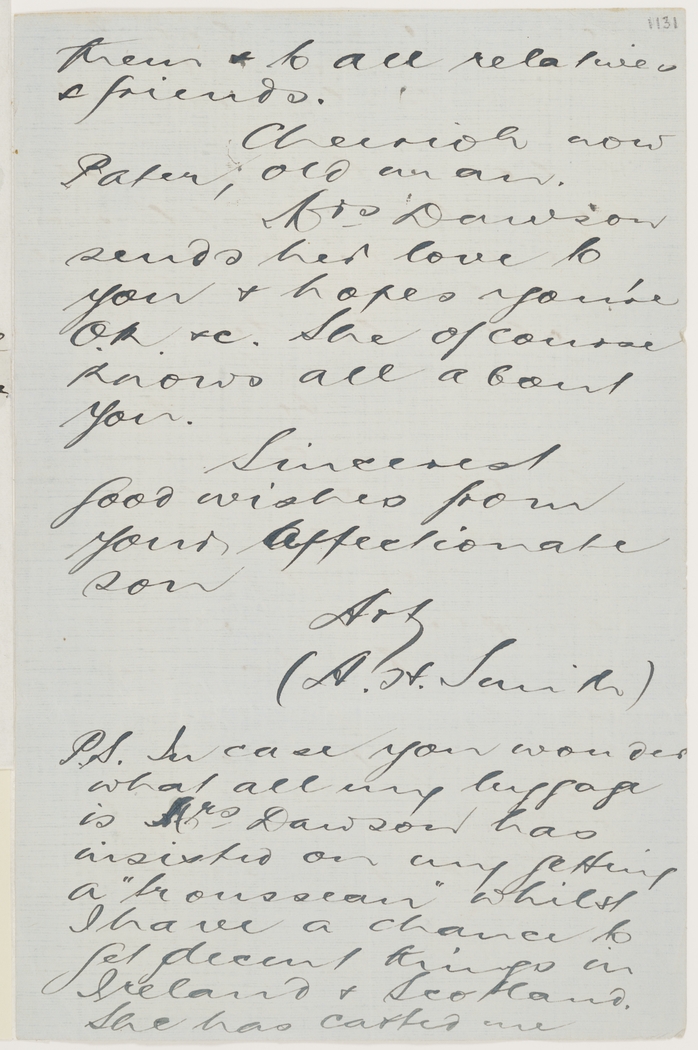 1131
them & to all relatives
& friends.
Cheerioh now
Pater, old man.
Mrs Dawson
sends her love to
you & hopes you're
O.K &c. She of course
knows all about
you.
Sincerest
good wishes from
your affectionate
son
Art
(A. H. Smith)
P.S. In case you wonder
what all my luggage
is Mrs Dawson has
insisted on my getting
a "trousseau" whilst
I have a chance to
get decent things in
Ireland & Scotland.
She has carted me